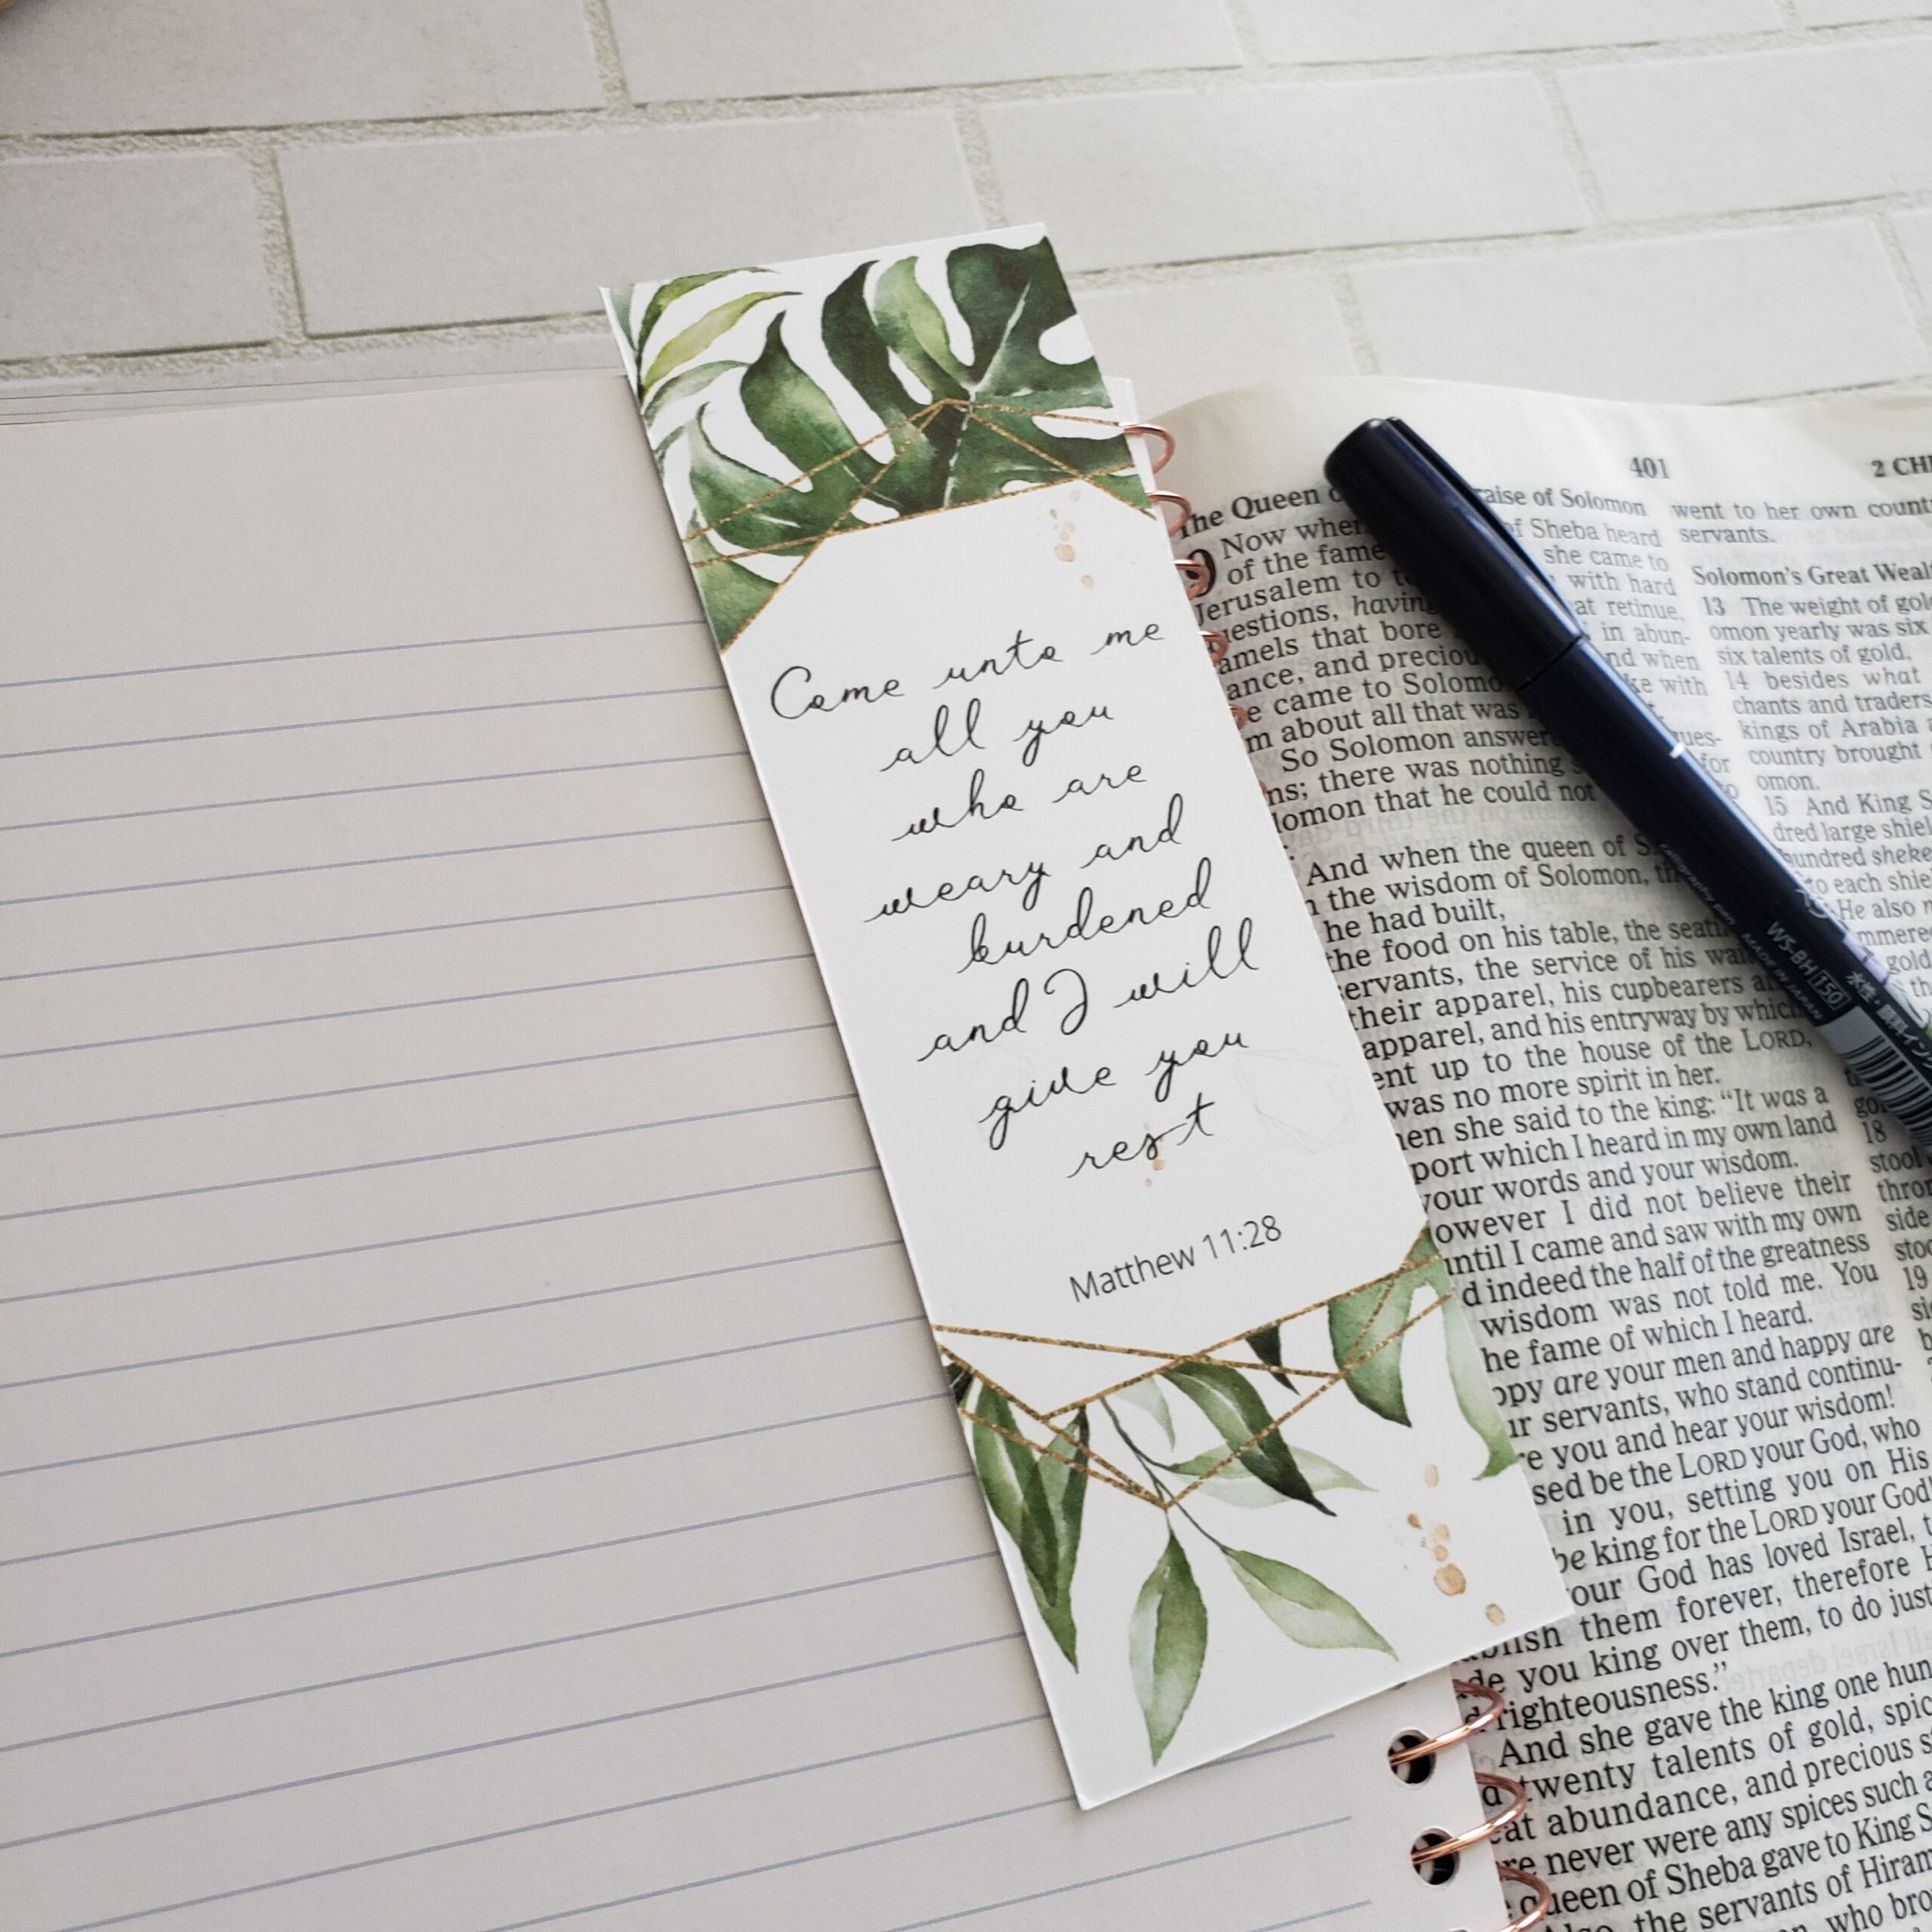 Come unto me
all you
who are
weary and
burdened
and I will
give you
rest
Matthew 11:28
401
2
The Queen
raise of Solomon
Now when
of Sheba heard
of the fame
she came to
Jerusalem to
with hard
having
retinue,
that bore
in
and
when
came to Solomon
with
about all that was
So Solomon answered
there was nothing
for
that he could not
And when the queen of
the wisdom of Solomon,
he had built,
the food on his table, the
the service of his
their apparel, his cupbearers
apparel, and his entryway by which
up to the house of the LORD,
was no more spirit in her.
she said to the king: "It was a
which I heard in my own land
your words and your wisdom.
I did not believe their
until I came and saw with my own
indeed the half of the greatness
wisdom was not told me. You
the fame of which I heard.
are your men and happy are
servants, who stand continu-
you and hear your wisdom!
be the LORD your God, who
in you, setting you on His
be king for the LORD your God
your God has loved Israel,
them forever, therefore
you king over them, to do
righteousness."
And she gave the king one
twenty talents of gold,
abundance, and precious
never were any spices such
queen of Sheba gave to King
the servants of Hiram
who
went to her own
servants.
Solomon's Great
13 The weight of
yearly was six
six talents of gold,
14 besides what
chants and traders
kings of Arabia
country brought
omon.
15 And King
dred large
hundred
to each
He also
gold
18
19
WS-BH 150
MADE IN JAPAN